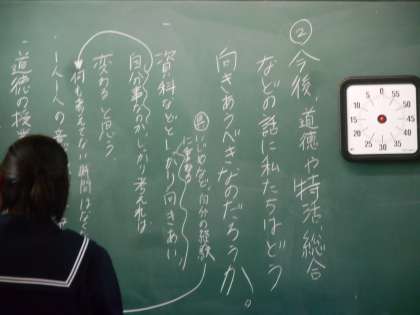 ② 今後 道徳や特活、総合
などの話に私たちはどう
向きあうべきなのだろうか。
資料などとしっかり向きあい、
自分事としっかり考えれば
変わると思う。
例 いじめなど、自分の経験
何も考えてない時間はなく
一人一人の意
道徳の授業
0
5
10
15
20
25
30
35
40
45
50
55